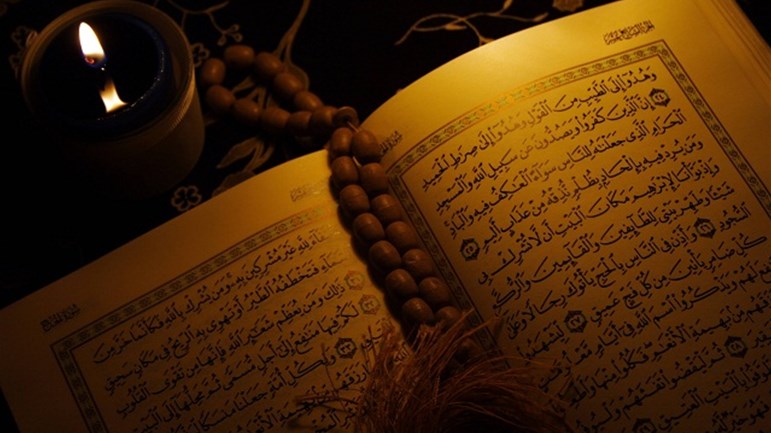 وَهُدُوٓا۟ إِلَى ٱلطَّيِّبِ مِنَ ٱلْقَوْلِ وَهُدُوٓا۟ إِلَىٰ صِرَٰطِ ٱلْحَمِيدِ
٢٤ إِنَّ ٱلَّذِينَ كَفَرُوا۟ وَيَصُدُّونَ عَن سَبِيلِ ٱللَّهِ وَٱلْمَسْجِدِ
ٱلْحَرَامِ ٱلَّذِى جَعَلْنَٰهُ لِلنَّاسِ سَوَآءً ٱلْعَٰكِفُ فِيهِ وَٱلْبَادِ
وَمَن يُرِدْ فِيهِ بِإِلْحَادٍۭ بِظُلْمٍ نُّذِقْهُ مِنْ عَذَابٍ أَلِيمٍ ٢٥
وَإِذْ بَوَّأْنَا لِإِبْرَٰهِيمَ مَكَانَ ٱلْبَيْتِ أَن لَّا تُشْرِكْ بِى
شَيْـًٔا وَطَهِّرْ بَيْتِىَ لِلطَّآئِفِينَ وَٱلْقَآئِمِينَ وَٱلرُّكَّعِ
ٱلسُّجُودِ ٢٦ وَأَذِّن فِى ٱلنَّاسِ بِٱلْحَجِّ يَأْتُوكَ رِجَالًا وَعَلَىٰ
كُلِّ ضَامِرٍ يَأْتِينَ مِن كُلِّ فَجٍّ عَمِيقٍ ٢٧ لِّيَشْهَدُوا۟
لَهُمْ وَيَذْكُرُوا۟ ٱسْمَ ٱللَّهِ فِىٓ أَيَّامٍ
مِّنۢ بَهِيمَةِ ٱلْأَنْعَٰمِ فَكُلُوا۟ مِنْهَا
ثُمَّ لْيَقْضُوا۟ تَفَثَهُمْ وَلْيُوفُوا۟
بِٱلْبَيْتِ ٱلْعَتِيقِ
لِلَّهِ غَيْرَ مُشْرِكِينَ بِهِۦ وَمَن يُشْرِكْ بِٱللَّهِ فَكَأَنَّمَا خَرَّ مِنَ
ٱلسَّمَآءِ فَتَخْطَفُهُ ٱلطَّيْرُ أَوْ تَهْوِى بِهِ ٱلرِّيحُ فِى مَكَانٍ سَحِيقٍ
٣١ ذَٰلِكَ وَمَن يُعَظِّمْ شَعَٰٓئِرَ ٱللَّهِ فَإِنَّهَا مِن تَقْوَى ٱلْقُلُوبِ
٣٢ لَكُمْ فِيهَا مَنَٰفِعُ إِلَىٰٓ أَجَلٍ مُّسَمًّى ثُمَّ مَحِلُّهَآ إِلَى ٱلْبَيْتِ
ٱلْعَتِيقِ ٣٣ وَلِكُلِّ أُمَّةٍ جَعَلْنَا مَنسَكًا